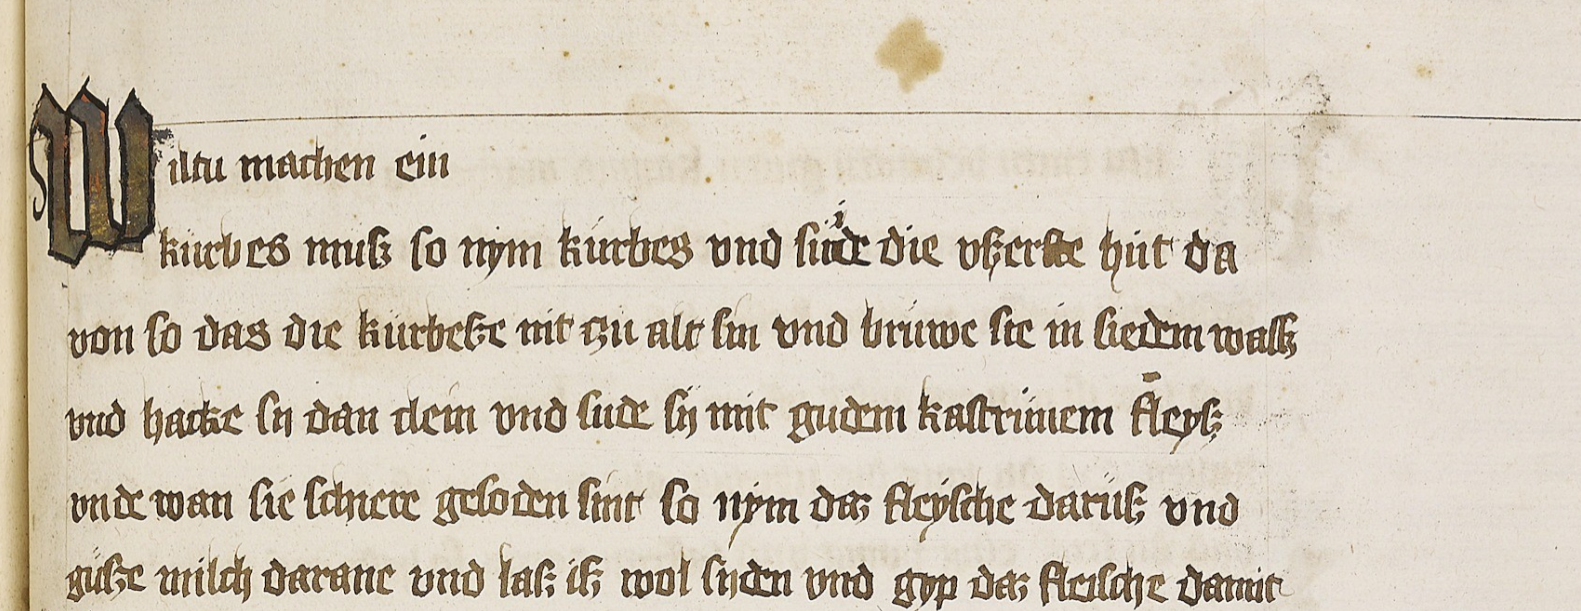 Wiltu machen ein
kurbes muß so nym kurbes vnd snide die vßerste hut da
von so das die kurbeße nit zu alt sin vnd bruwe sie in siedem wasß
vnd hacke sy dan clein vnd sude sy mit gudem kastrunem fleyß
vnde wan sie schiere gesoden sint so nym daz fleysche daruß vnd
güsze milch darane vnd laß iß wol syden vnd gyp daz fleische damit